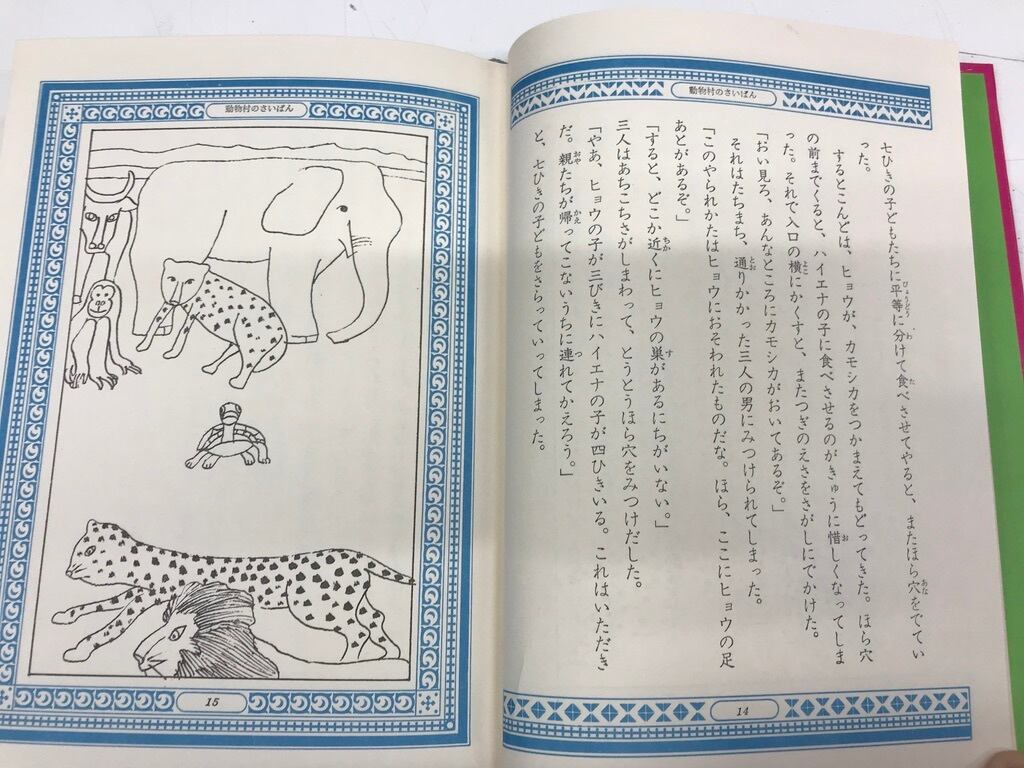 動物村のさいばん
七ひきの子どもたちに平等に分けて食べさせてやると、またほら穴をでてい
った。
するとこんどは、ヒョウが、カモシカをつかまえてもどってきた。ほら穴
の前までくると、ハイエナの子に食べさせるのがきゅうに惜しくなってしま
った。それで入口の横にかくすと、またつぎのえさをさがしにでかけた。
「おい見ろ、あんなところにカモシカがおいてあるぞ。」
それはたちまち、通りかかった三人の男にみつけられてしまった。
「このやられかたはヒョウにおそわれたものだな。ほら、ここにヒョウの足
あとがあるぞ。」
「すると、どこか近くにヒョウの巣があるにちがいない。」
三人はあちこちさがしまわって、とうとうほら穴をみつけだした。
「やあ、ヒョウの子が三びきにハイエナの子が四ひきいる。これはいただき
だ。親たちが帰ってこないうちに連れてかえろう。」
と、七ひきの子どもをさらっていってしまった。
14
動物村のさいばん
15